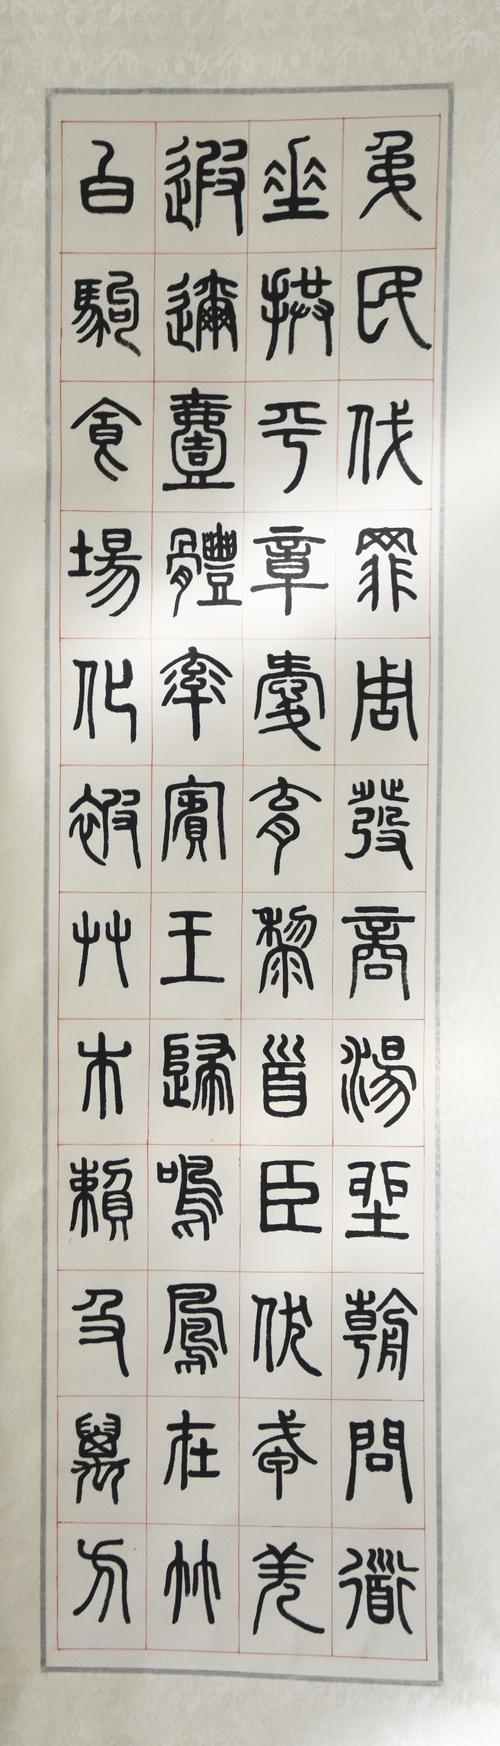 弔民伐罪周發商湯坐朝問道
垂拱平章愛育黎首臣伏戎羌
遐邇壹體率賓王歸鳴鳳在竹
白駒食場化被艸木賴及萬方